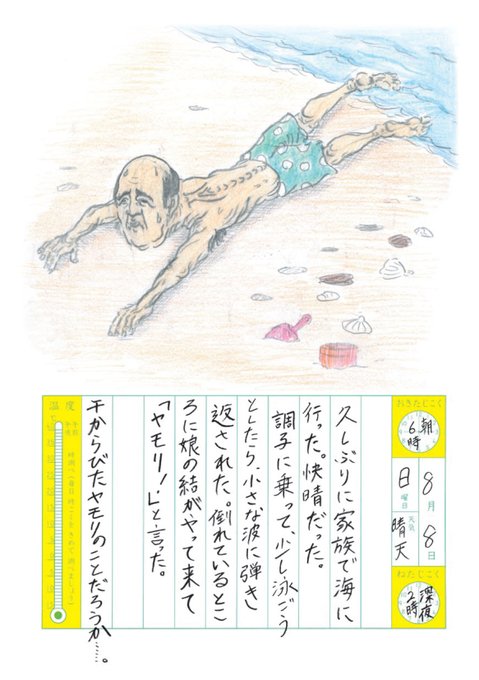 おきたじこく
朝
6時
8月8日
日曜日
天気
晴天
ねたじこく
深夜
2時
久しぶりに家族で海に
行った。快晴だった。
調子に乗って、少し泳ごう
としたら、小さな波に弾き
返された。倒れているとこ
ろに娘の結がやって来て
「ヤモリ！」と言った。
干からびたヤモリのことだろうか……。
温度